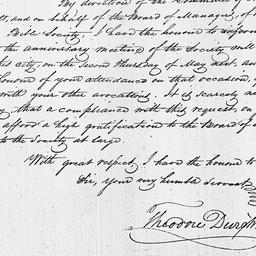 By direction of the Committee of
and on behalf of the Board of Managers, of
Bible Society, I have the honour to inform
the anniversary meeting of the Society will
city, on the second Thursday of May next, and
honour of your attendance on that occasion,
with your other avocations. It is scarcely ne
that a compliance with this request, on
afford a high gratification to the Board of
to the Society at large.
With great respect, I have the honour to
Sir, your very humble servant
Theodore Dwight